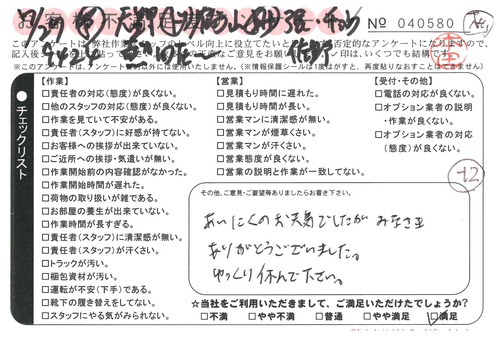 № 040580
このアンケートは、弊社作業
※このアンケートは
チェックリスト
【作業】
□責任者の対応(態度)が良くない。
□他のスタッフの対応(態度)が良くない。
□作業を見ていて不安がある。
□責任者(スタッフ)に好感が持てない。
□お客様への挨拶が出来ていない。
□ご近所への挨拶・気遣いが無い。
□作業開始前の内容確認がなかった。
□作業開始時間が遅れた。
□荷物の取り扱いが雑である。
□お部屋の養生が出来ていない。
□作業時間が長すぎる。
□責任者(スタッフ)に清潔感が無い。
□責任者(スタッフ)が汗くさい。
□トラックが汚い。
□梱包資材が汚い。
□運転が不安(下手)である。
□靴下の履き替えをしてない。
□スタッフにやる気がみられない。
【営業】
□見積もり時間に遅れた。
□見積もり時間が長い。
□営業マンに清潔感が無い。
□営業マンが煙草くさい。
□営業マンが汗くさい。
□営業態度が良くない。
□営業の説明と作業が一致してない。
【受付・その他】
□電話の対応が良くない。
□オプション業者の説明
・作業が良くない。
□オプション業者の対応
(態度)が良くない。
+2
その他、ご意見・ご要望等ありましたらお書き下さい。
あいにくのお天気でしたが みなさま
ありがとうございました。
ゆっくり休んで下さい。
☆当社をご利用いただきまして、ご満足いただけたでしょうか?
□不満 □やや不満 □普通 □やや満足 □満足